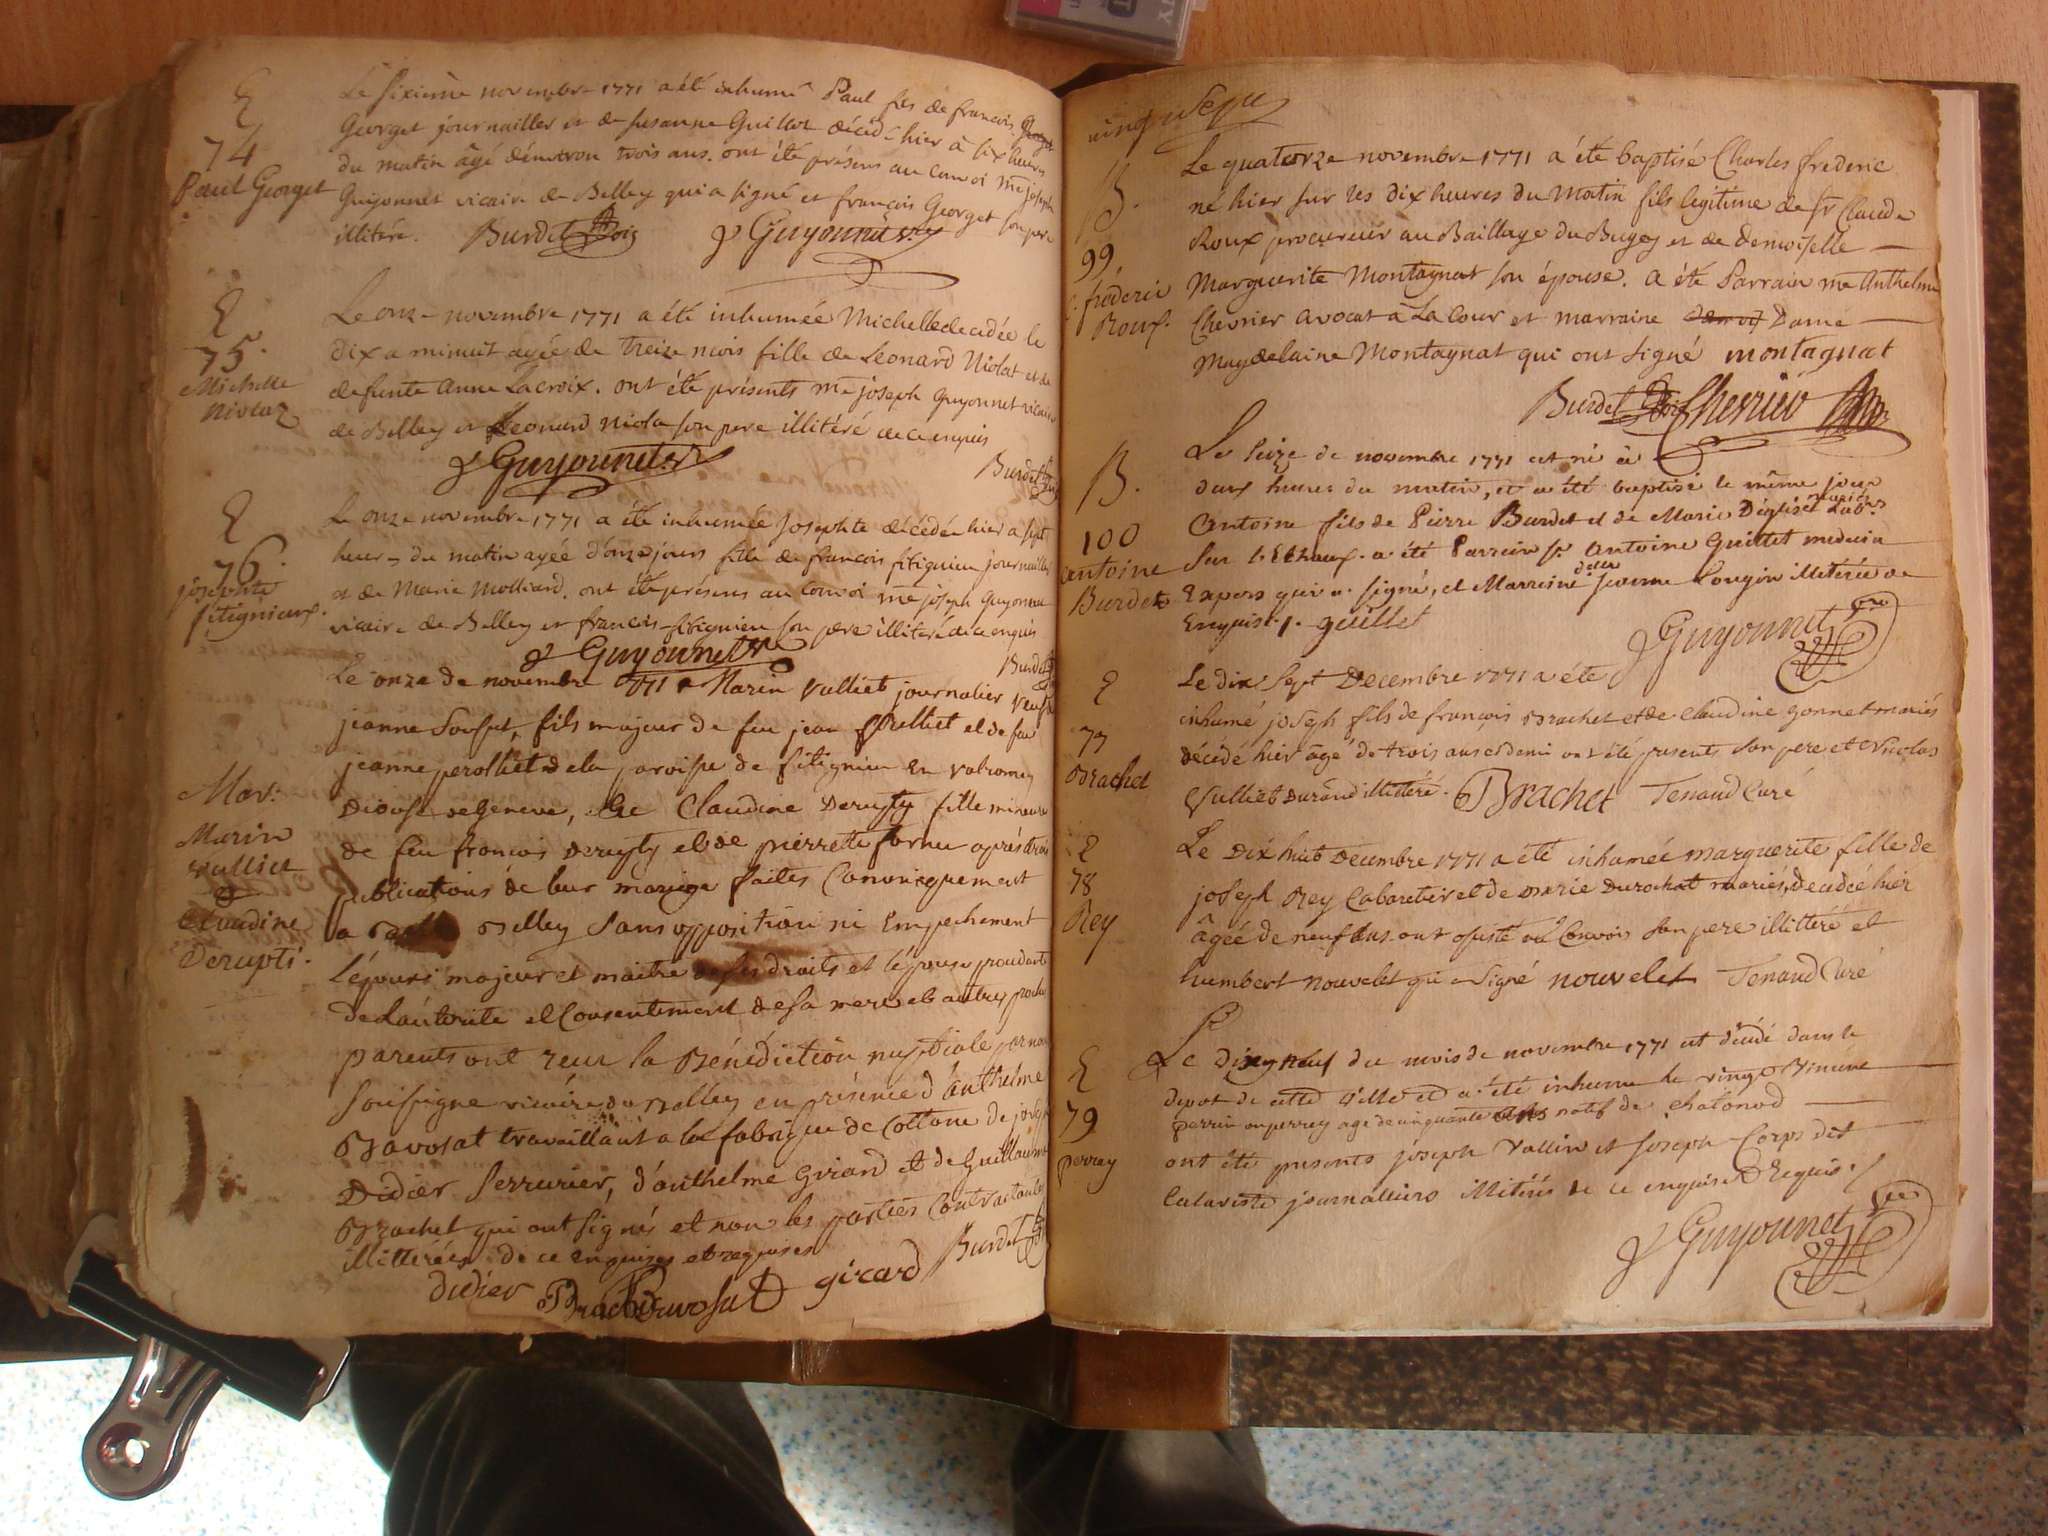 E
74
Paul Georget
Le sixieme novembre 1771 a été inhumé Paul fils de francois Georget
Georget journailler et de susanne Guillot décédé hier à six heures
du matin âgé d'environ trois ans. ont été présens au convoi me joseph
Guyonnet vicaire de Belley qui a signé et françois Georget son pere
illitéré. Burdet Guyonnet
E
75.
Michelle
Niolaz
Le onze novembre 1771 a été inhumée Michelle decedée le
dix a minuit agée de treize mois fille de Leonard Niolat et de
defunte anne Lacroix. ont été présents me joseph guyonnet vicaire
de Belley et Leonard niola son pere illitéré de ce enquis
Guyonnet Burdet
E
76.
josephte
fitignieux.
Le onze novembre 1771 a été inhumée josephte décédée hier a sept
heures du matin agée d'onze jours fille de francois fitignieu journailler
et de Marie Molliard. ont été présens au convoi me joseph guyonnet
vicaire de Belley et francois fitignieu son pere illitéré de ce enquis
Guyonnet Burdet
Mar:
Marin
vulliet
&
Claudine
Derupti.
Le onze de novembre 1771 Marin vulliet journalier veuf
jeanne , fils majeur de feu jean vulliet et de feu
jeanne perolliet de la paroisse de fitignieu en valromey
Diouse de Geneve, et Claudine Derupty fille mineure
de feu francois Derupty et de pierrette fornier aprés trois
publications de leur mariage faites Canonicquement
a Belley sans opposition ni Empechement
L'épour majeur et maitre de ses droits et l'épouse procedante
de L'autorite et Consentement de sa mere et autres proches
parents ont reçu la Bénédiction nuptiale par nous
soussigne vicaire de Belley en présence d'anthelme
Bavosat travaillant a la fabrique de Cottone de joseph
Didier serrurier, d'anthelme Girard et de Guillaume
Brachet qui ont signés et non les parties Contractantes
illitérées de ce enquises et requises
didier Brachet Bavosat girard Burdet
vingt sept
B.
99
c. fréderic
Roux.
Le quatorze novembre 1771 a été baptisé Charles frederic
né hier sur les dix heures du Matin fils legitime de sr Claude
Roux procureur au Baillage du Bugey et de demoiselle
Marguerite Montagnat son épouse. a été Parrain me Anthelme
Chevrier avocat à La Cour et marraine Dame
Magdelaine Montagnat qui ont signé montagnat
Burdet Cherrier
B.
100
antoine
Burdet
Le seize de novembre 1771 est né à
deux heures du matin, et a été baptisé le même jour
Antoine fils de Pierre Burdet et de Marie Déglise mariés Labrs
sur . a été Parrein sr antoine Guillet medecin
Expers qui a signé, et Marreine delle jeanne Lougin illitérée de
Enquise. guillet
Guyonnet
E
77
Brachet
Le dix sept Decembre 1771 a été
inhumé joseph fils de françois Brachet et de claudine gonnet mariés
décédé hier âgé de trois ans et demi ont été presents son pere et Nicolas
Vulliet Durand illitéré. Brachet Tenand Curé
E
78
Rey
Le Dix huit Decembre 1771 a été inhumée marguerite fille de
joseph Rey Cabaretier et de marie Durochat mariés, decedée hier
âgéé de neuf ans ont assisté au Convois son pere illittéré et
humbert nouvelet qui a signé nouvelet Tenand Curé
E
79
perrey
Le dizneuf du mois de novembre 1771 est décédé dans le
depot de cette Ville et a été inhumé le vingt Vincent
perrin ou perrey agé de cinquante ans natif de Chatonod
ont été presents joseph Vallin et joseph Corps dit
Calaviste journalliers illitérés de ce enquis et Requis
Guyonnet